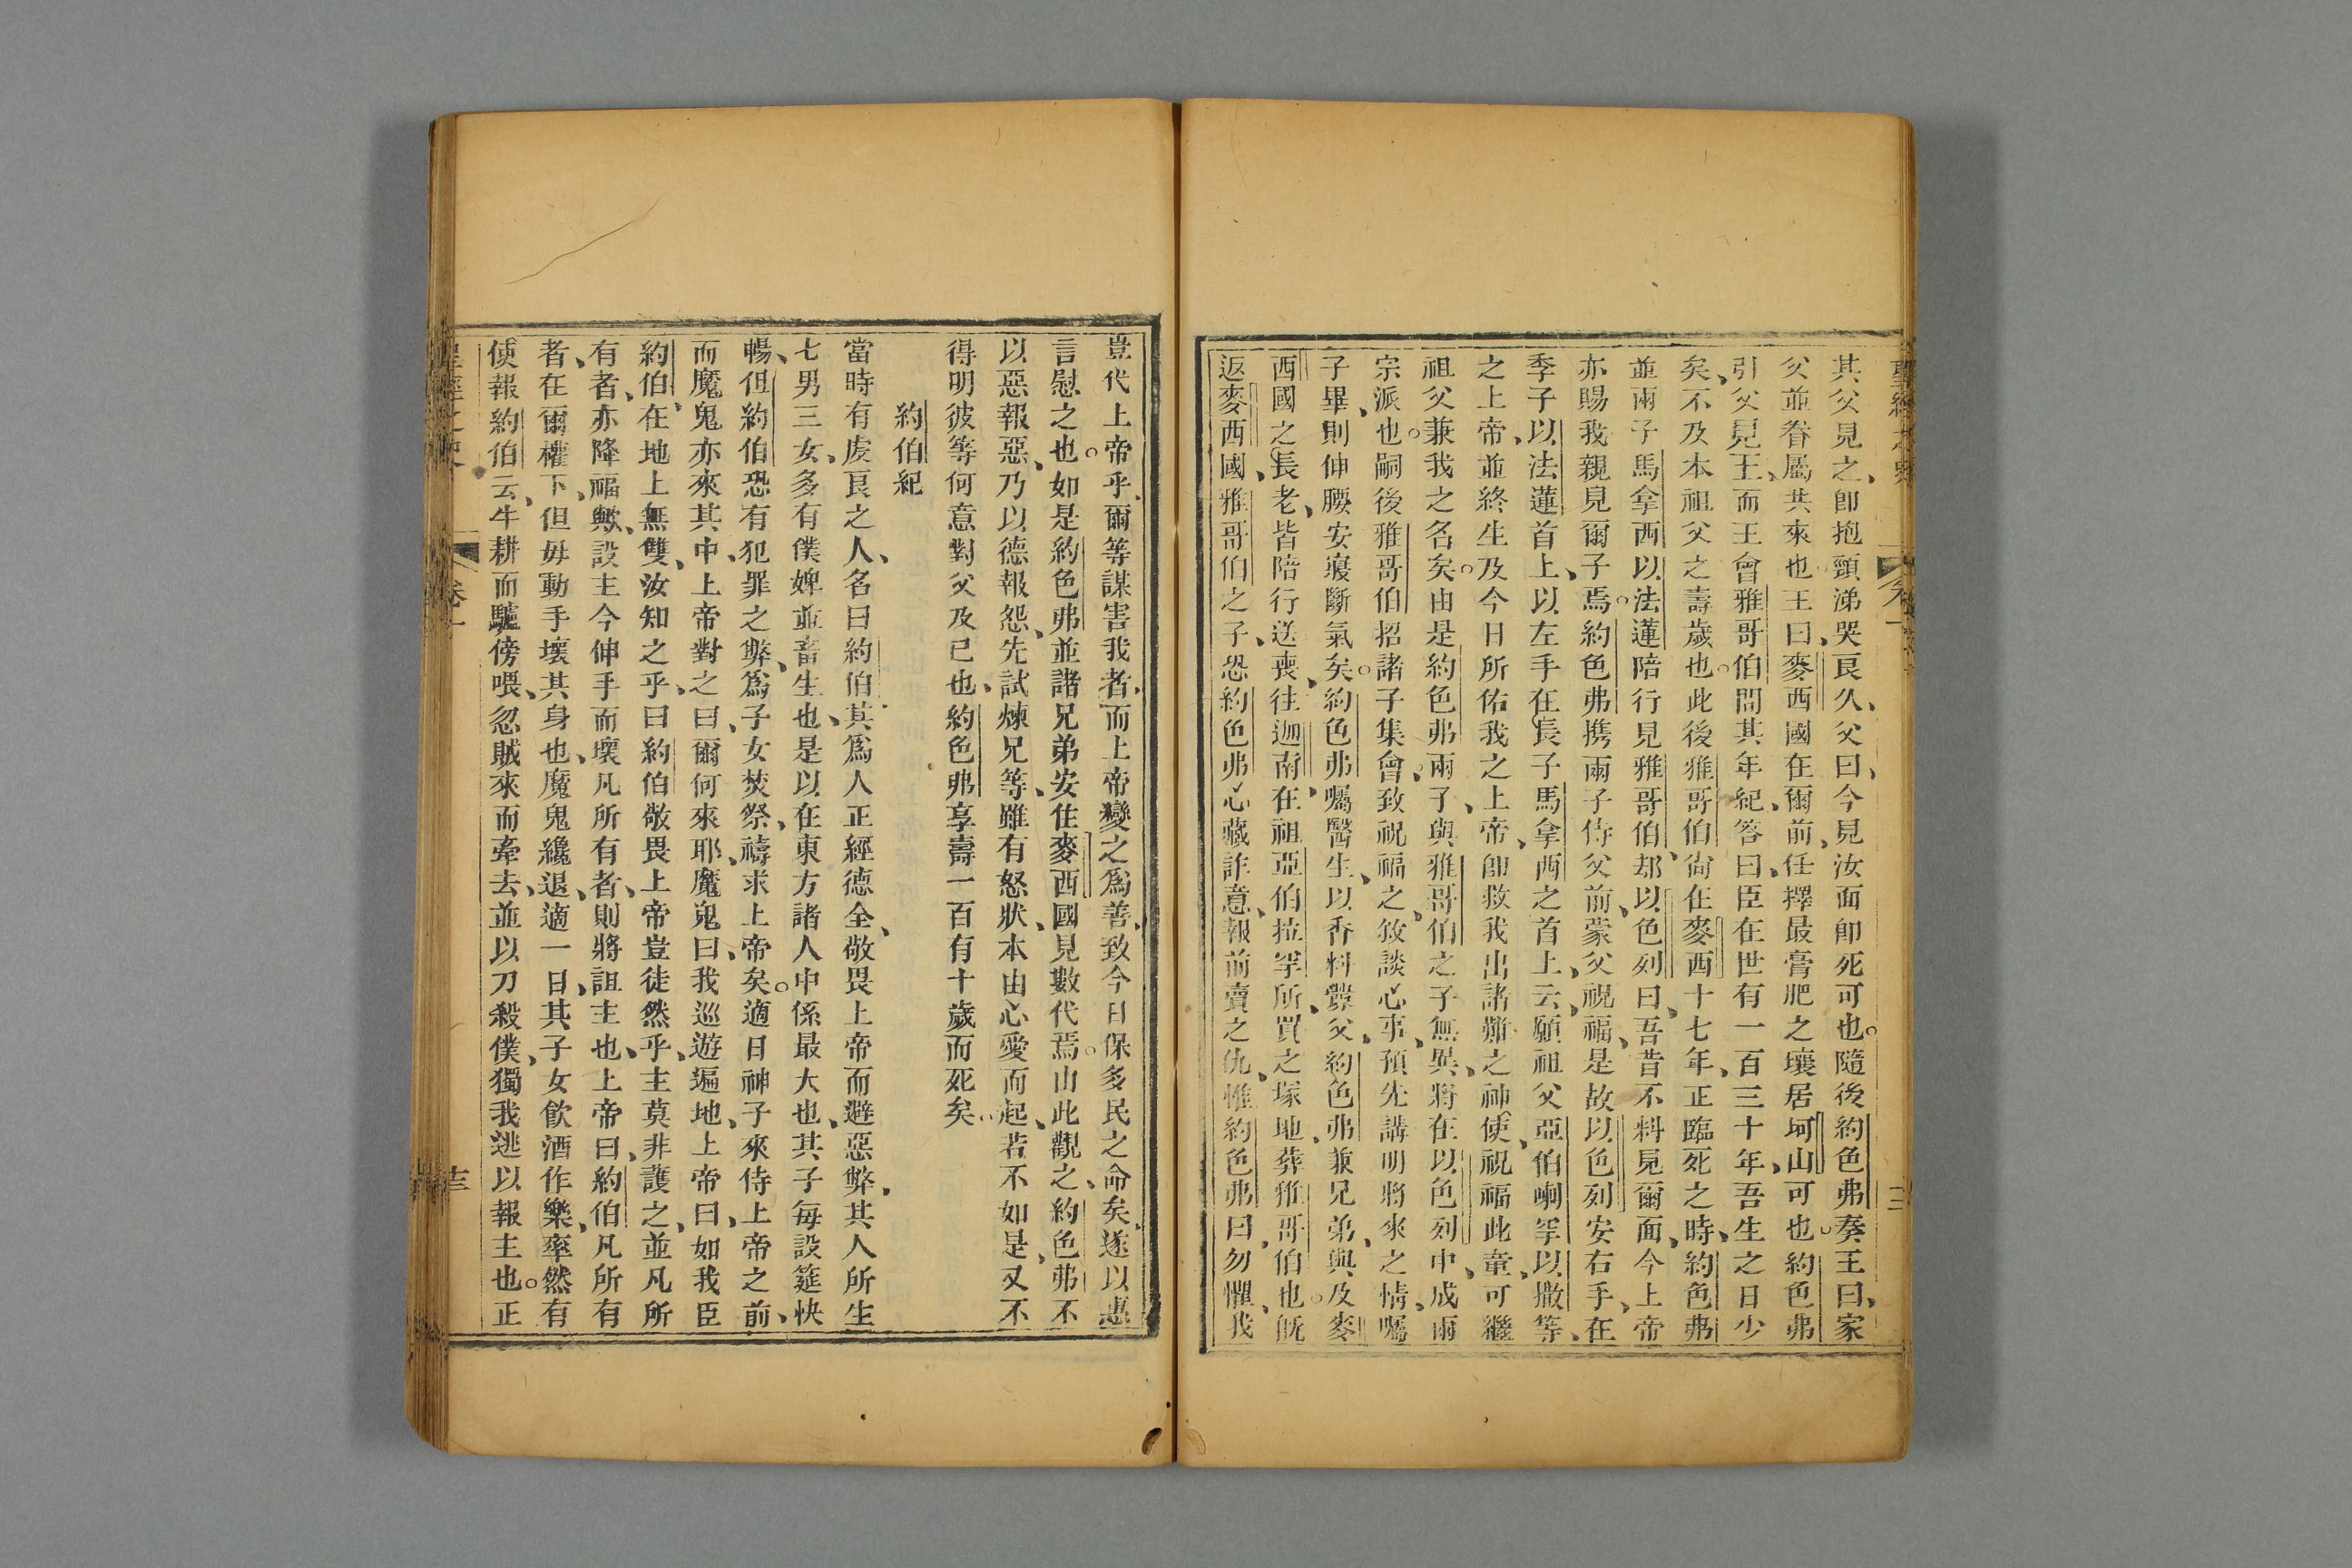 其父見之、卽抱頸涕哭良久、父曰、今見汝面卽死可也。隨後約色弗奏王曰、家
父並眷屬共來也王曰、麥西國在爾前、任擇最膏肥之壤居坷山、可也。約色弗
引父見王、而王會雅哥伯問其年紀、答曰、臣在世有一百三十年、吾生之日少
矣、不及本祖父之壽歲也。此後雅哥伯尙在麥西十七年、正臨死之時、約色弗
並兩子馬拿西以法蓮陪行見雅哥伯、却以色列曰、吾昔不料見爾面、今上帝
亦賜我親見爾子焉。約色弗携兩子侍父前、蒙父祝福、是故以色列安右手、在
季子以法蓮首上、以左手在長子馬拿西之首上、云、願祖父亞伯喇罕以撒等、
之上帝、並終生及今日所佑我之上帝、卽救我出諸難之神使、祝福此童、可繼
祖父兼我之名矣。由是約色弗兩子、與雅哥伯之子無異、將在以色列中、成兩
宗派也。嗣後雅哥伯招諸子集會、致祝福之、敘談心事、預先講明將來之情、囑
子畢、則伸腰安寢斷氣矣。約色弗囑醫生、以香料釁父、約色弗兼兄弟、與及麥
西國之長老、皆陪行送喪、往迦南、在祖亞伯拉罕所、買之塚地、葬雅哥伯也。旣
返麥西國、雅哥伯之子、恐約色弗心藏詐意、報前賣之仇、惟約色弗曰、勿懼、我
豈代上帝乎、爾等謀害我者、而上帝變之爲善、致今日保多民之命矣、遂以惠
言慰之也。如是約色弗並諸兄弟安住麥西國見數代焉。由此觀之、約色弗不
以惡報惡、乃以德報怨、先試煉兄等、雖有怒狀、本由心愛而起、若不如是、又不
得明彼等何意對父及己也、約色弗享壽一百有十歲而死矣。
約伯紀
當時有虔良之人、名曰約伯、其爲人正經德全、敬畏上帝而避惡弊、其人所生
七男三女、多有僕婢並畜生也、是以在東方諸人中係最大也、其子每設筵快
暢、但約伯恐有犯罪之弊、爲子女焚祭、禱求上帝矣。適日神子來侍上帝之前、
而魔鬼亦來其中、上帝對之曰、爾何來耶、魔鬼曰、我巡遊遍地、上帝曰、如我臣
約伯、在地上無雙、汝知之乎、曰約伯敬畏上帝豈徒然乎、主莫非護之、並凡所
有者、亦降福歟、設主今伸手而壞凡所有者、則將詛主也、上帝曰、約伯凡所有
者、在爾權下、但毋動手壞其身也、魔鬼纔退、適一日、其子女飮酒作樂、率然有
使報約伯云、牛耕而驢傍喂、忽賊來而牽去、並以刀殺僕、獨我逃以報主也。正
卷一